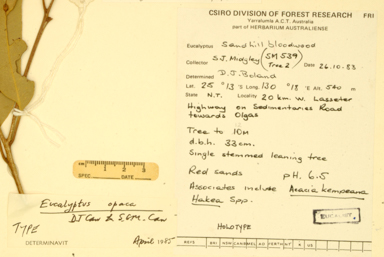 CSIRO DIVISION OF FOREST RESEARCH FRI
Yarralumla A.C.T. Australia
part of HERBARIUM AUSTRALIENSE
Eucalyptus Sandhill bloodwood
Collector S.J. Midgley (SM 539 Tree 2) Date 26.10.83
Determined D.J. Boland
Lat. 25 ° 13 'S Long. 130 ° 13 'E Alt. 540 m
State N.T. Locality 20 km. W. Lasseter
Highway on Sedimentaries Road
towards Olgas
Tree to 10m
d.b.h. 33cm.
Single stemmed leaning tree
Red sands pH. 6.5
Associates include Acacia kempeana
Hakea spp.
HOLOTYPE
Eucalyptus opaca
D.J. Carr & S.G.M. Carr
TYPE
DETERMINAVIT April 1985